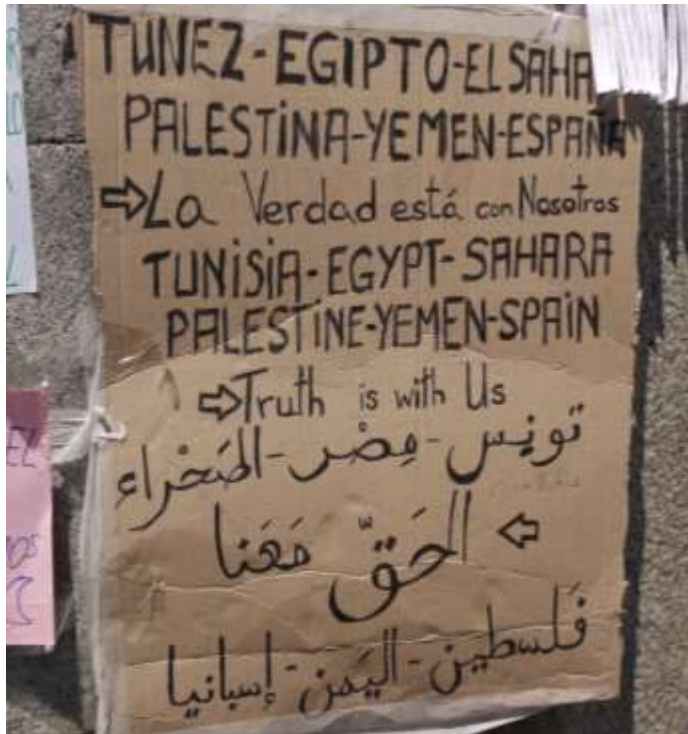 TUNEZ-EGIPTO-EL SAHA
PALESTINA-YEMEN-ESPAÑA
⇨La Verdad está con Nosotros
TUNiSiA-EGYPT-SAHARA
PALESTiNE-YEMEN-SPAiN
⇨Truth is with Us
تونِس - مِصْر - الصَحْراء
⇦ الحَقّ مَعَنا
فَلسطين - اليَمن - إسبانيا